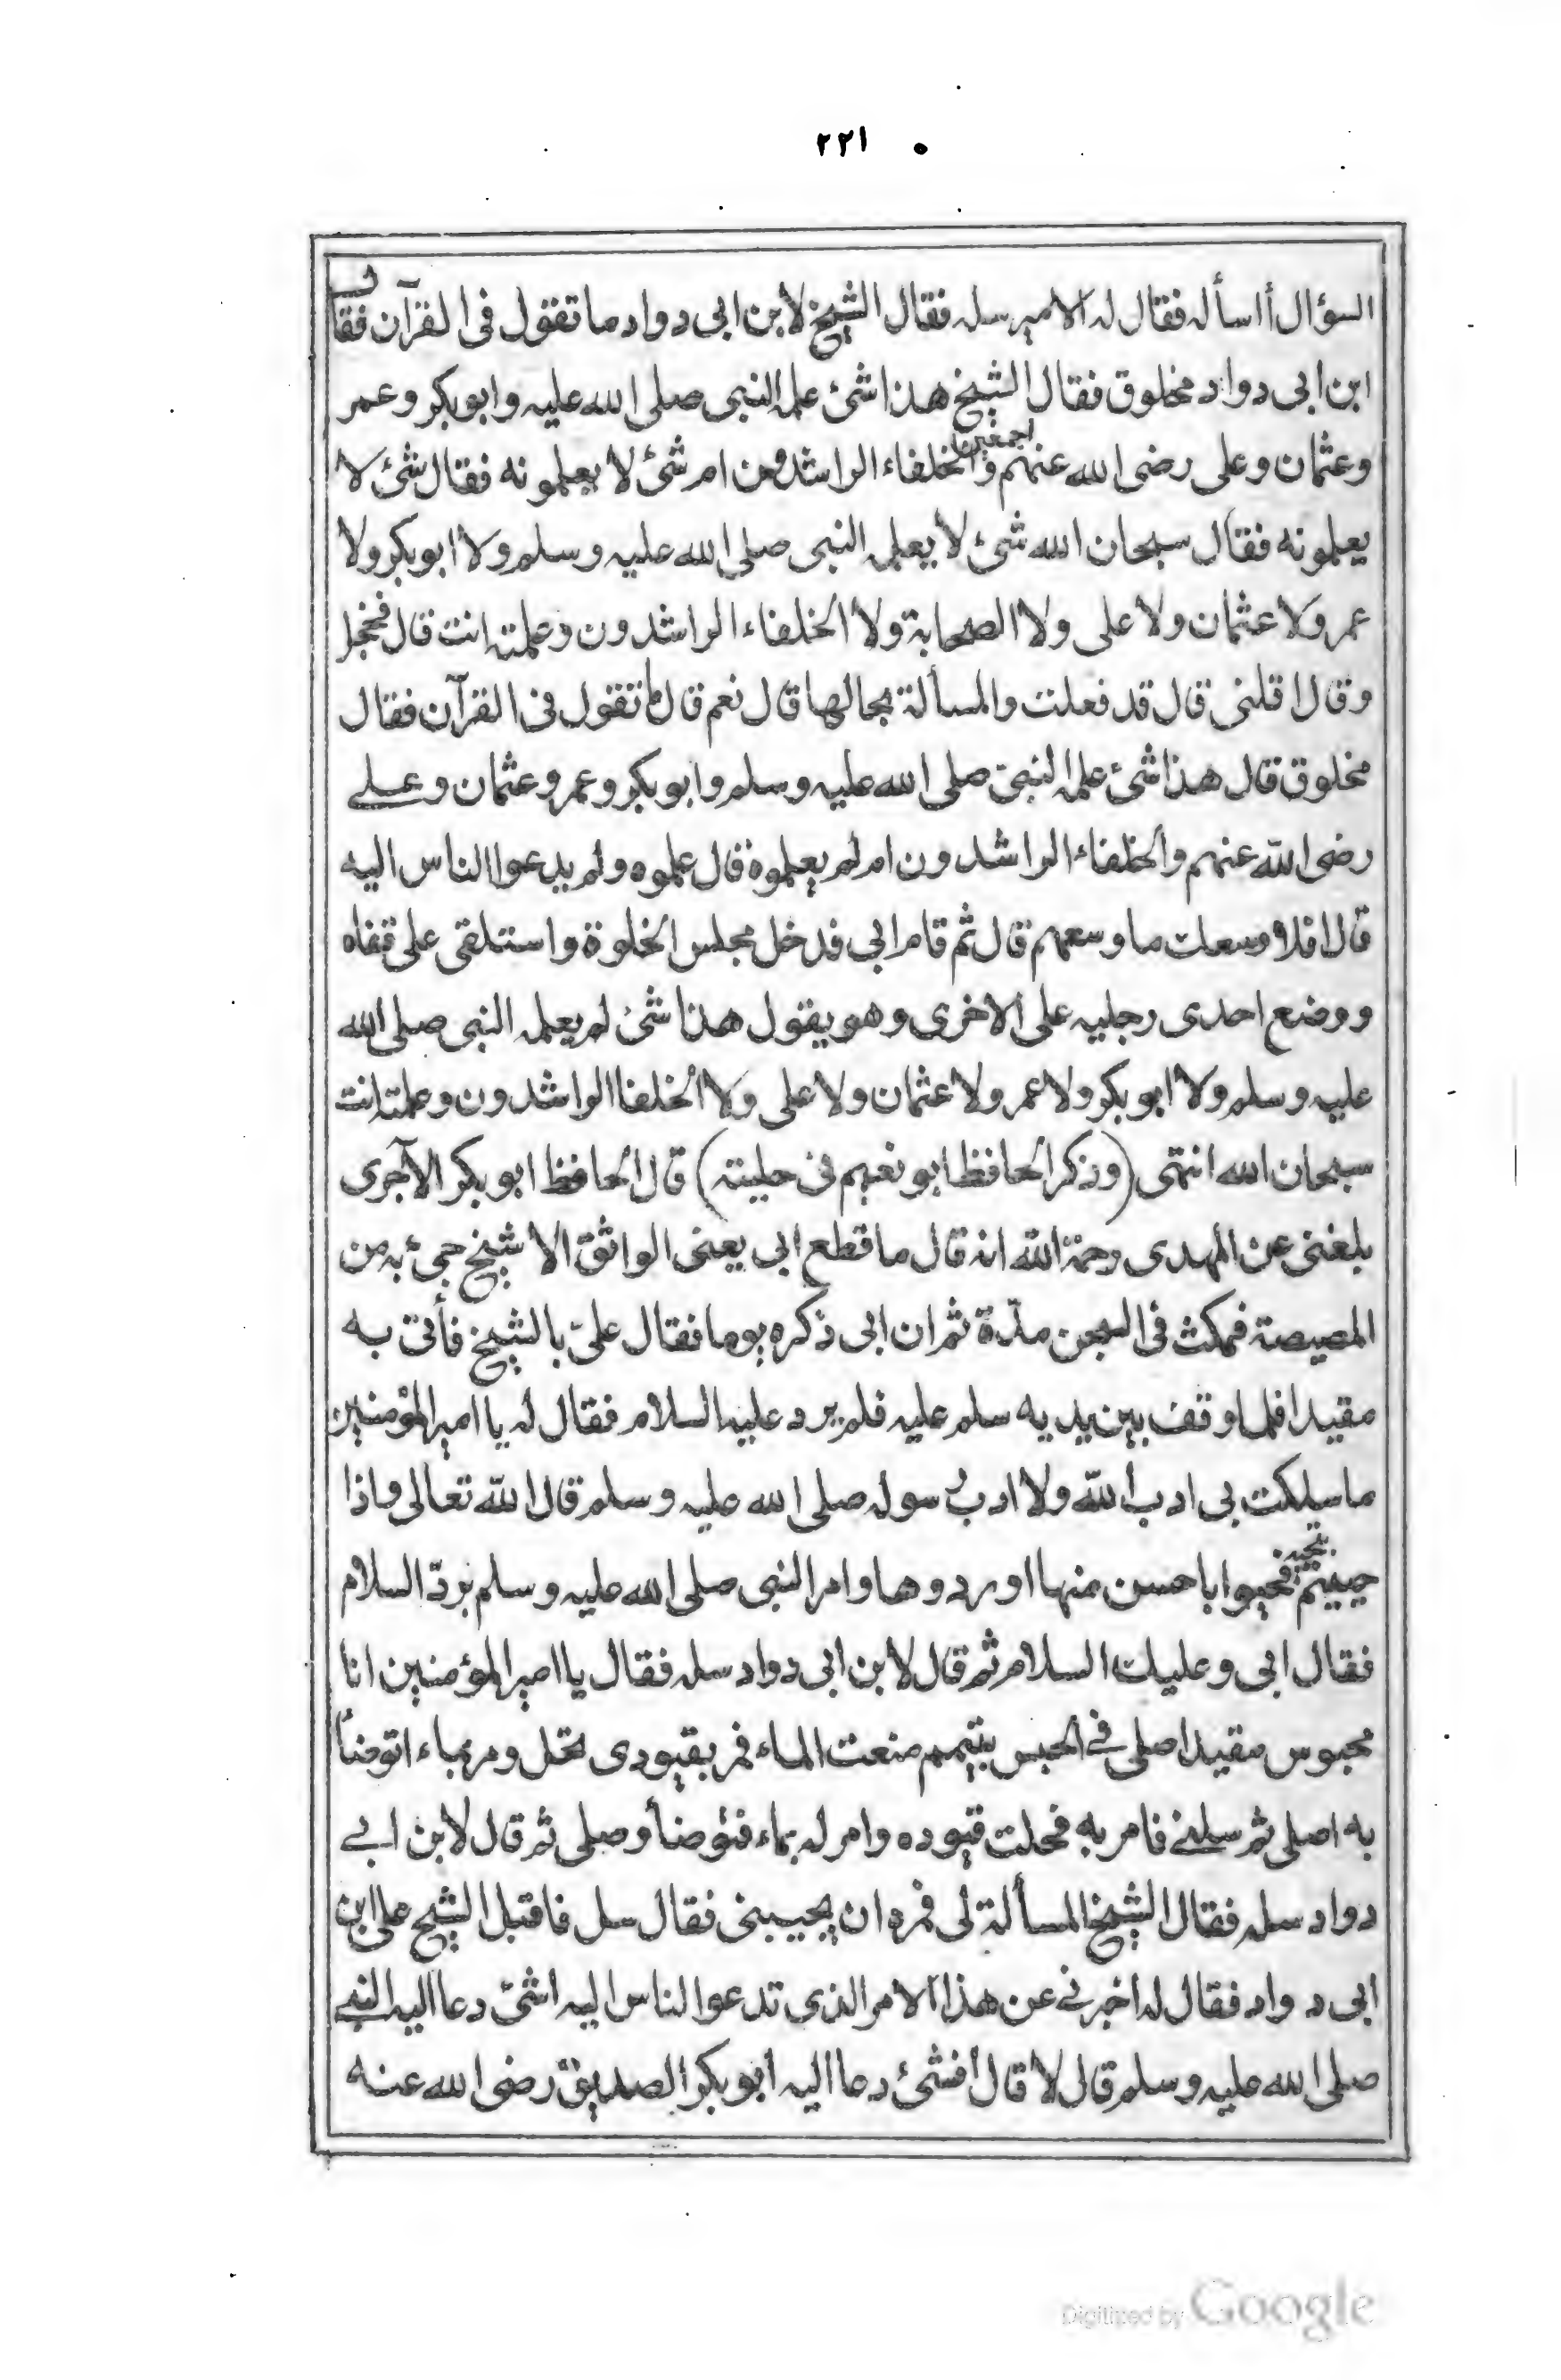 ٢٢١
السؤال أاسأله فقال له الامير سله فقال الشيخ لابن ابى دواد ما تقول فى القرآن فقال
ابن ابى دواد مخلوق فقال الشيخ هذا شئ علمه النبى صلى الله عليه وابوبكر وعمر
وعثمان وعلى رضى الله عنهم اجمعين والخلفاء الراشدون ام شئ لا يعلمونه فقال شئ لا
يعلمونه فقال سبحان الله شئ لا يعلمه النبى صلى الله عليه وسلم ولا ابوبكر ولا
عمر ولا عثمان ولا على ولا الصحابة ولا الخلفاء الراشدون وعلمته انت قال فخجل
وقال اقلنى قال قد فعلت والمسألة بحالها قال نعم قال ما تقول فى القرآن فقال
مخلوق قال هذا شئ علمه النبىّ صلى الله عليه وسلم وابوبكر وعمر وعثمان وعلى
رضى اللّه عنهم والخلفاء الراشدون ام لم يعلموه قال علموه ولم يدعوا الناس اليه
قال افلا وسعك ما وسعهم قال ثم قام ابى فدخل مجلس الخلوة واستلقى على قفاه
ووضع احدى رجليه على الاخرى وهو يقول هذا شئ لم يعلمه النبى صلى الله
عليه وسلم ولا ابوبكر ولا عمر ولا عثمان ولا على ولا الخلفا الراشدون وعلمته انت
سبحان الله انتهى (وذكر الحافظ ابو نعيم فى حليته) قال الحافظ ابوبكر الآجرى
بلغنى عن المهدى رحمة اللّه انه قال ما قطع ابى يعنى الواثق الا شيخ جئ به من
المصيصة فمكث فى السجن مدّة ثم ان ابى ذكره يوما فقال علىّ بالشيخ فأتى به
مقيدا فلما وقف بين يديه سلم عليه فلم يرد عليه السلام فقال له يا امير المؤمنين
ما سلكت بى ادب اللّه ولا ادب رسوله صلى الله عليه وسلم قال اللّه تعالى واذا
حييتم بتحية فحيوا باحسن منها او ردوها وامر النبى صلى الله عليه وسلم بردّ السلام
فقال ابى وعليك السلام ثم قال لابن ابى دواد سله فقال يا امير المؤمنين انا
محبوس مقيد اصلى فى الحبس بتيمم منعت الماء فمر بقيودى تحل ومر بماء اتوضأ
به اصلى ثم سلنى فامر به فحلت قيوده وامر له بماء فتوضأ وصلى ثم قال لابن ابى
دواد سله فقال الشيخ المسألة لى فمره ان يجيبنى فقال سل فاقبل الشيخ على ابن
ابى دواد فقال له اخبرنى عن هذا الامر الذى تدعوا الناس اليه اشئ دعا اليه النبى
صلى الله عليه وسلم قال لا قال افشئ دعا اليه ابوبكر الصديق رضى الله عنه
Digitized by Google